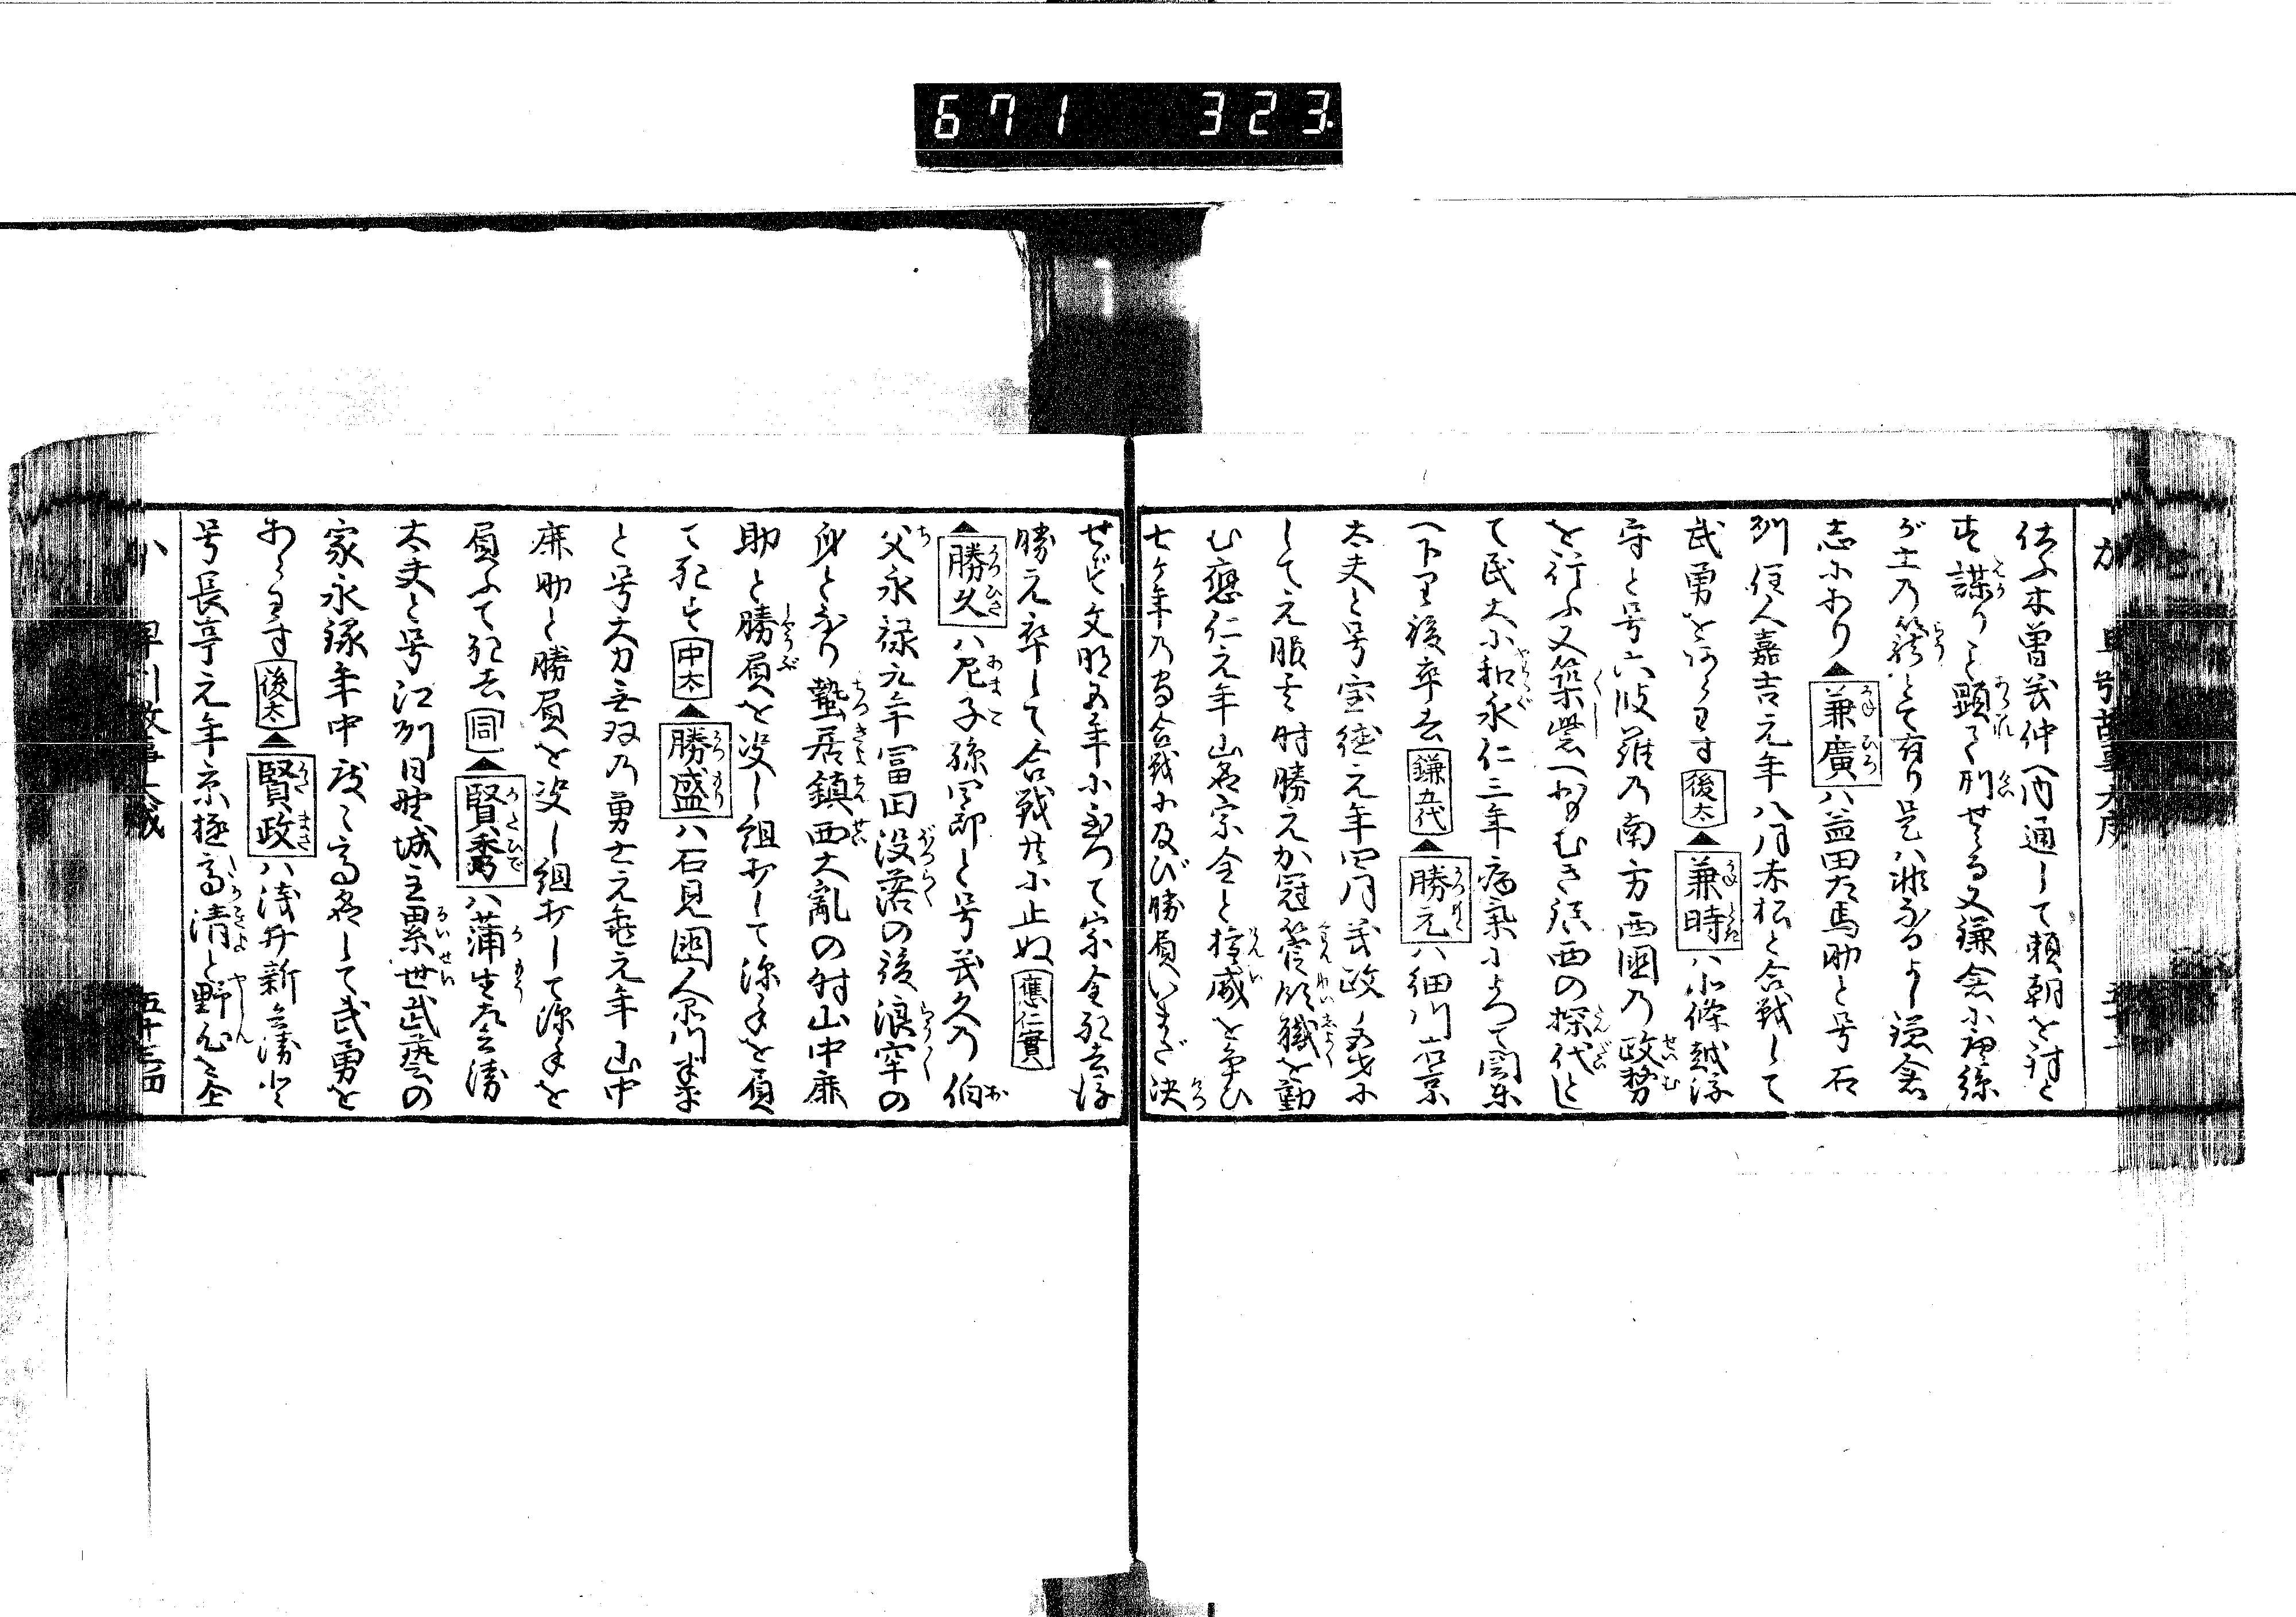 671 323
伝ふ木曽義仲へ内通して頼朝を討と
す謀りこと顕て刑せらる又鎌倉小社絲
が土乃籠とて有り是ハ非なるよし鎌倉
志にあり▲兼廣ハ益田左馬助と号石
州住人嘉吉元年八月赤松と合戦して
武勇をあらはす後太▲兼時ハ北條越後
守と号六波羅乃南方西國乃政勢
を行ふ又築紫へおもむき鎮西の探代とし
て民大に和永仁三年病氣によつて関東
へ下り後卒去鎌五代▲勝元ハ細川右京
太夫と号宝徳元年四月義政公に
して元服す時勝元か冠管領職を勤
む應仁元年山名宗全と権威を争ひ
七ケ年乃寄合戦に及び勝負いまだ決
せず文明五年に至つて宗全死去後
勝元卒して合戦共に止ぬ應仁實
▲勝久ハ尼子孫四郎と号義久乃伯
父永禄九年冨田没落の後浪牢の
身となり蟄居鎮西大亂の時山中鹿
助と勝負を決し組打して深手を負
て死す中太▲勝盛ハ石見國人品川半平
と号大力無双乃勇士元亀元年山中
鹿助と勝負を決し組打して深手を
負ふて死去同▲賢秀ハ蒲生左兵衛
太夫と号江州日野城主累世武藝の
家永録年中度々高名して武勇を
あらはす後太▲賢政ハ浅井新兵衛と
号長享元年京極高清と野心を企
五十三四